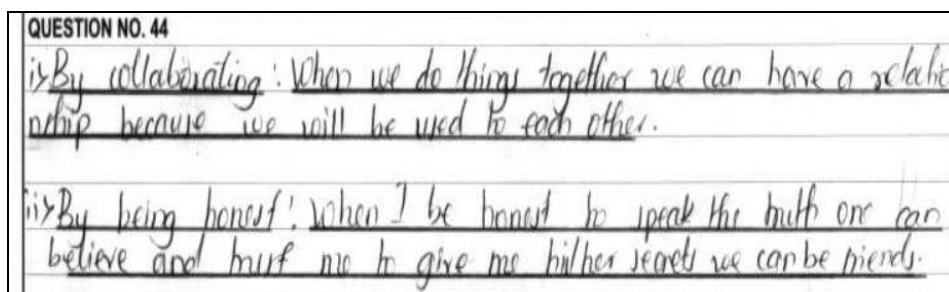 QUESTION NO. 44
i> By collaborating: When we do things together we can have a relatio
nship because we will be used to each other.
ii> By being honest: When I be honest to speak the truth one can
believe and trust me to give me his/her secrets we can be friends.